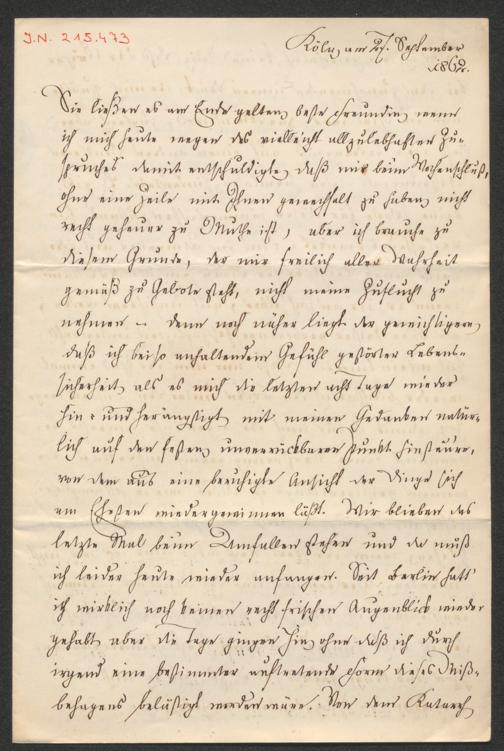 J.N. 215.473
Köln, am 27. September
1862.
Sie ließen es am Ende gelten, beste Freundin, wenn
ich mich heute wegen des vielleicht allzulebhaften Zu-
spruches damit entschuldigte, daß mir beim Wochenschluß,
ohne eine Zeile mit Ihnen gewechselt zu haben, nicht
recht geheuer zu Muthe ist, aber ich brauche zu
diesem Grunde, der mir freilich aller Wahrheit
gemäß zu Gebote steht, nicht meine Zuflucht zu
nehmen – denn noch näher liegt der gewichtigere,
daß ich bei so anhaltendem Gefühl gestörter Lebens-
sicherheit, als es mich die letzten acht Tage wieder
hin- und herängstigt, mit meinen Gedanken natür-
lich auf den festen, unverrückbaren Punkt hinsteure,
von dem aus eine beruhigte Ansicht der Dinge sich
am Ehesten wiedergewinnen läßt. Wir blieben das
letzte Mal beim Umfallen stehen und da muß
ich leider heute wieder anfangen. Seit Berlin hatt'
ich wirklich noch keinen recht frischen Augenblick wieder
gehabt, aber die Tage gingen hin, ohne daß ich durch
irgend eine bestimmter auftretende Form dieses Miß-
behagens belästigt worden wäre. Von dem Katarrh